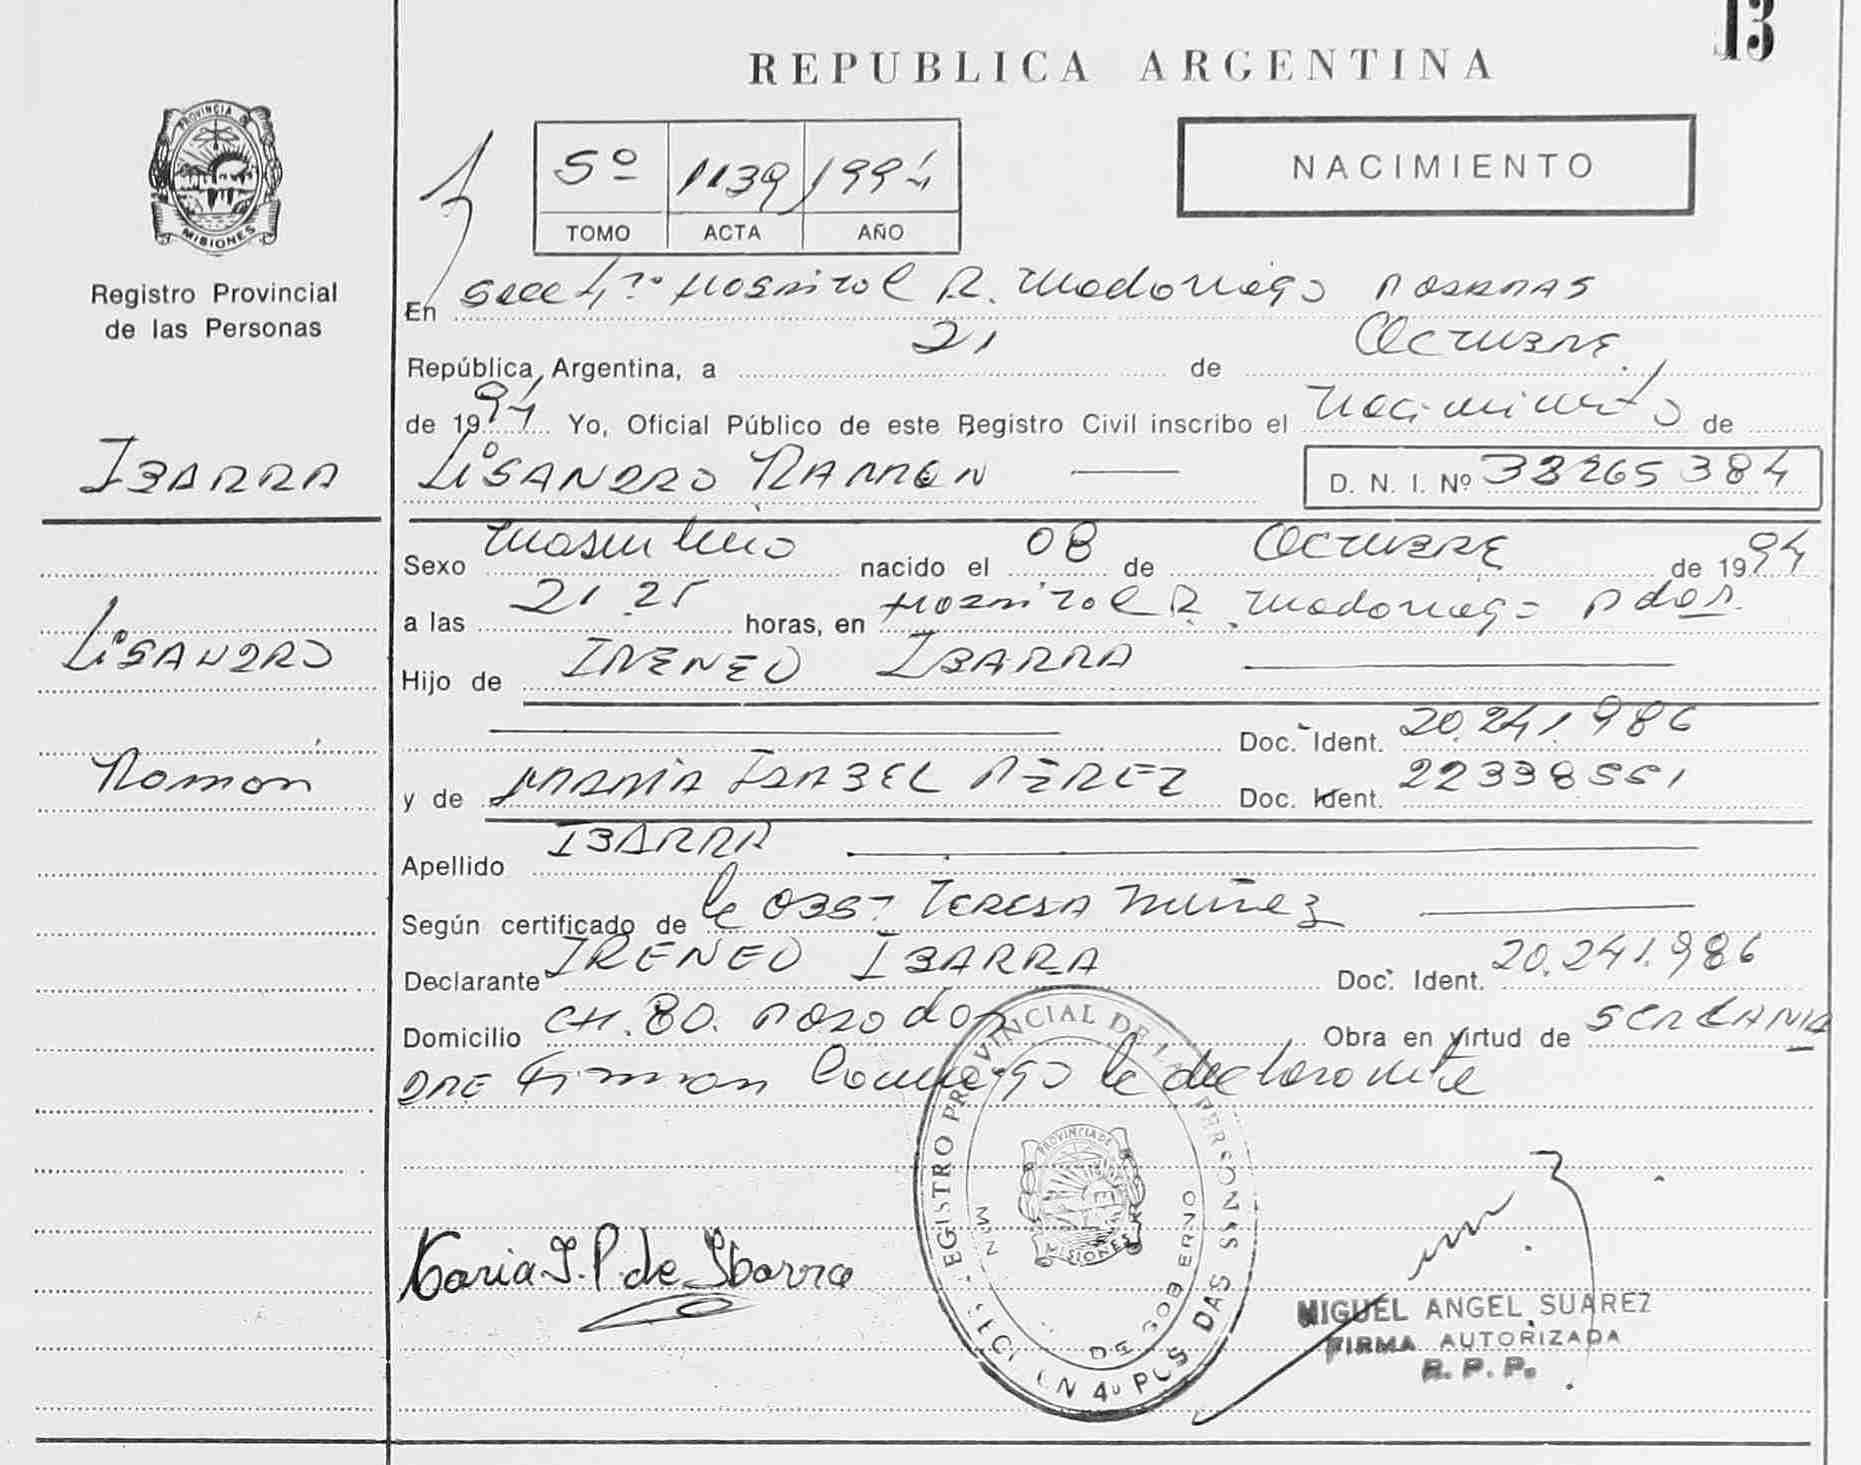 13
REPUBLICA ARGENTINA
PROVINCIA DE
MISIONES
Registro Provincial
de las Personas
5º 1139 1994
TOMO ACTA AÑO
NACIMIENTO
En Secc 4ta Hospital R. Madariaga Posadas
República Argentina, a 21 de Octubre
de 1994 Yo, Oficial Público de este Registro Civil inscribo el Nacimiento de
IBARRA
LISANDRO RAMON
D. N. I. Nº 38265384
Sexo Masculino nacido el 08 de OCTUBRE de 1994
a las 21 25 horas, en Hospital R. Madariaga Pdas.
LISANDRO
Hijo de IRENEO IBARRA
Doc. Ident. 20.241.986
Ramon
y de MARIA ISABEL PEREZ Doc. Ident. 22338551
Apellido IBARRA
Según certificado de la Obst TERESA Nuñez
Declarante IRENEO IBARRA Doc. Ident. 20.241.986
Domicilio CH. 80. Posadas Obra en virtud de SER LA
Firman Conmigo la declarante
REGISTRO PROVINCIAL DE LAS PERSONAS
PROVINCIA DE
MISIONES
MIN DE GOBIERNO
SECCION 4º POSADAS
Maria I. P. de Ibarra
MIGUEL ANGEL SUAREZ
FIRMA AUTORIZADA
R. P. P.